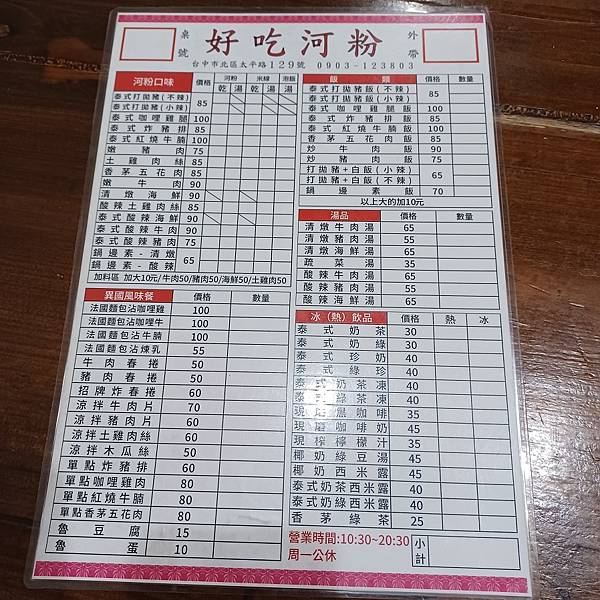 桌號
好吃河粉
外帶
台中市北區太平路129號 0903-123803
河粉口味 價格 河粉 米線 泡飯
乾 湯 乾 湯 湯
泰式打拋豬(不辣)
泰式打拋豬(小辣) 85
泰式咖哩雞腿 100
泰式炸豬排 85
泰式紅燒牛腩 100
嫩豬肉 75
土雞肉絲 85
香茅五花肉 85
嫩牛肉 90
清燉海鮮 90
酸辣土雞肉絲 85
泰式酸辣海鮮 90
泰式酸辣牛肉 90
泰式酸辣豬肉 75
鍋邊素-清燉
鍋邊素-酸辣 65
加料區 加大10元/牛肉50/豬肉50/海鮮50/土雞肉50
異國風味餐 價格 數量
法國麵包沾咖哩雞 100
法國麵包沾咖哩牛 100
法國麵包沾牛腩 100
法國麵包沾煉乳 55
牛肉春捲 50
豬肉春捲 50
招牌炸春捲 60
涼拌牛肉片 70
涼拌豬肉片 60
涼拌土雞肉絲 60
涼拌木瓜絲 50
單點炸豬排 60
單點咖哩雞肉 80
單點紅燒牛腩 80
單點香茅五花肉 80
魯豆腐 15
魯蛋 10
飯類 價格 數量
泰式打拋豬飯(不辣)
泰式打拋豬飯(小辣) 85
泰式咖哩雞腿飯 100
泰式炸豬排飯 85
泰式紅燒牛腩飯 100
香茅五花肉飯 85
炒牛肉飯 90
炒豬肉飯 75
打拋豬+白飯(小辣)
打拋豬+白飯(不辣) 85
鍋邊素飯 70
以上大的加10元
湯品 價格 數量
清燉牛肉湯 65
清燉豬肉湯 55
清燉海鮮湯 65
蔬菜湯 35
酸辣牛肉湯 65
酸辣豬肉湯 55
酸辣海鮮湯 65
冰(熱)飲品 價格 熱 冰
泰式奶茶 30
泰式奶綠 30
泰式珍奶 40
泰式綠珍 40
泰式奶茶凍 40
泰式奶綠凍 40
現磨黑咖啡 35
現磨咖啡奶 45
現榨檸檬汁 35
椰奶綠豆湯 45
椰奶西米露 40
泰式奶茶西米露 45
泰式奶綠西米露 45
香茅綠茶 25
營業時間:10:30~20:30
周一公休
小計